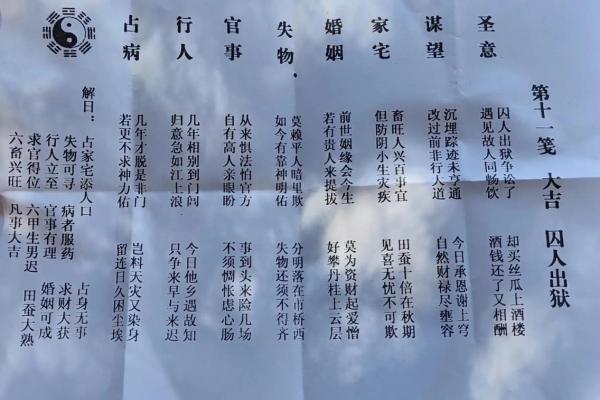 第十一笺 大吉 囚人出狱
圣意
囚人出狱争讼了 却买丝瓜上酒楼
遇见故人同畅饮 酒钱还了又相酬
谋望
沉埋踪迹未亨通 今日承恩谢上穹
改过前非行人道 自然财禄尽雍容
家宅
畜旺人兴百事宜 田蚕十倍在秋期
但防阴小生灾疾 见喜无忧不可欺
婚姻
前世姻缘会今生 莫为资财起爱憎
若有贵人来提拔 好攀丹桂上云层
失物、
莫赖平人暗里欺 分明落在市桥西
如今有靠神明佑 失物还须不得齐
官事
从来惧法怕官方 事到头来险几场
自有高人亲眼盼 不须惆怅虑心肠
行人
几年相别到门闾 今日他乡遇故知
归意急如江上浪 只争来早与来迟
占病
几年才脱是非门 岂料天灾又染身
若更不求神力佑 留连日久困尘埃
解曰：占家宅添人口 占身无事
失物可寻 病者服药 求财大获
行人立至 官事有理 婚姻可成
求官得位 六甲生男迟 田蚕大熟
六畜兴旺 凡事大吉